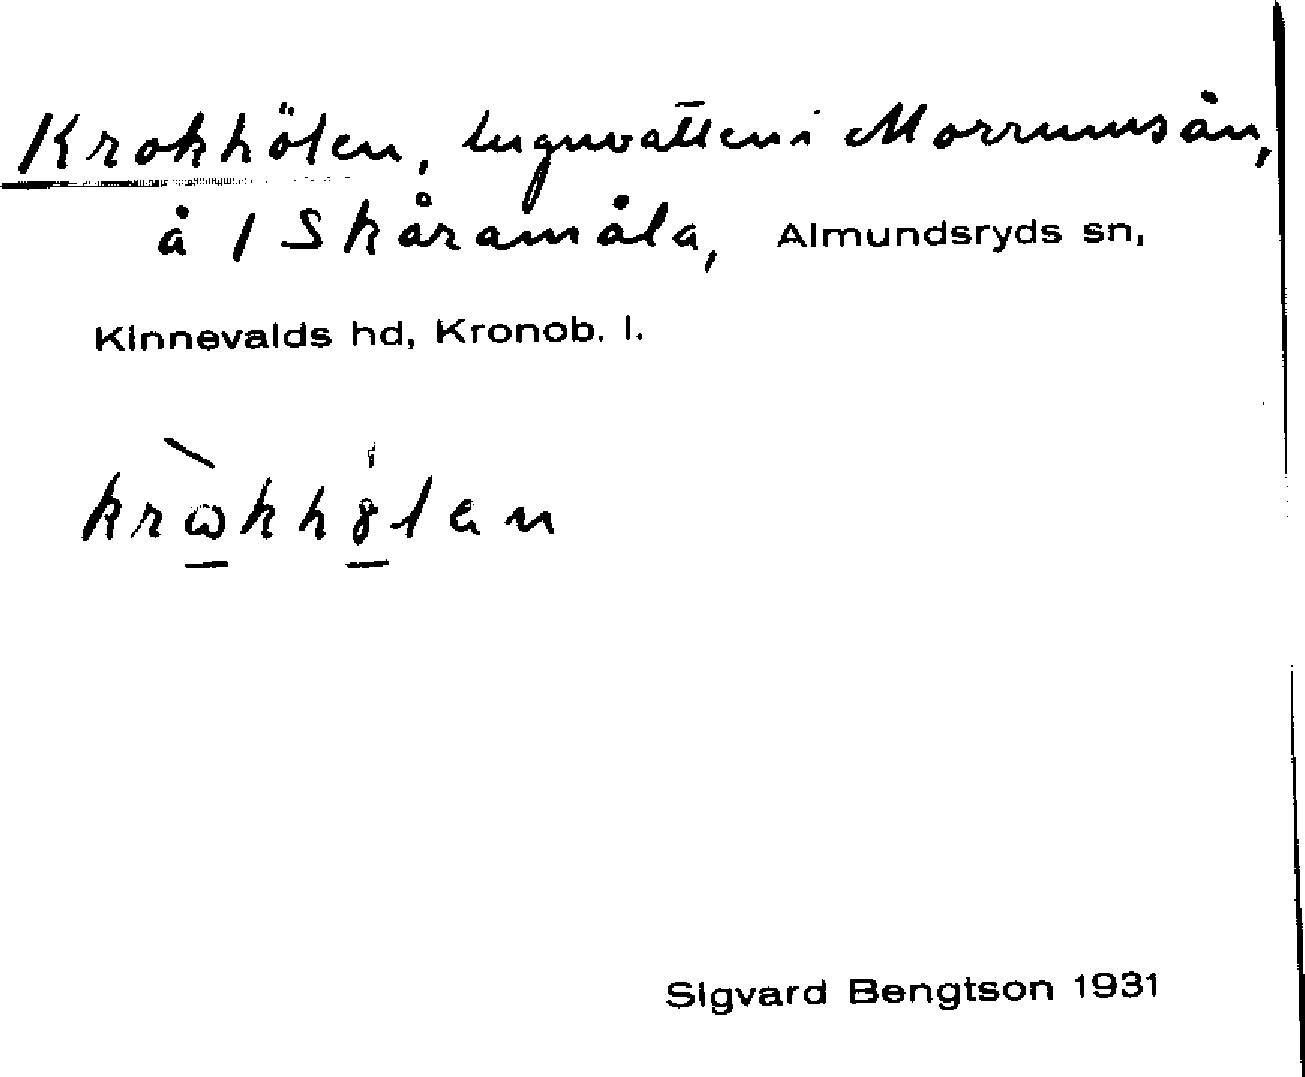 Krokhölen, lugnvatten i Morrumsån,
å 1 Skåramåla, Almundsryds sn,
Kinnevalds hd, Kronob. l.
Sigvard Bengtson 1931